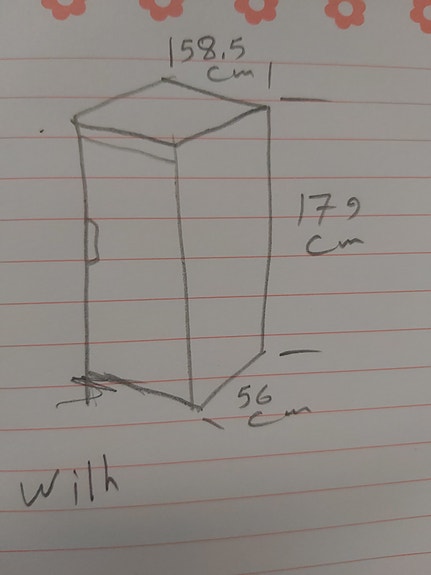 158.5
cm
179
cm
56
cm
Wilh